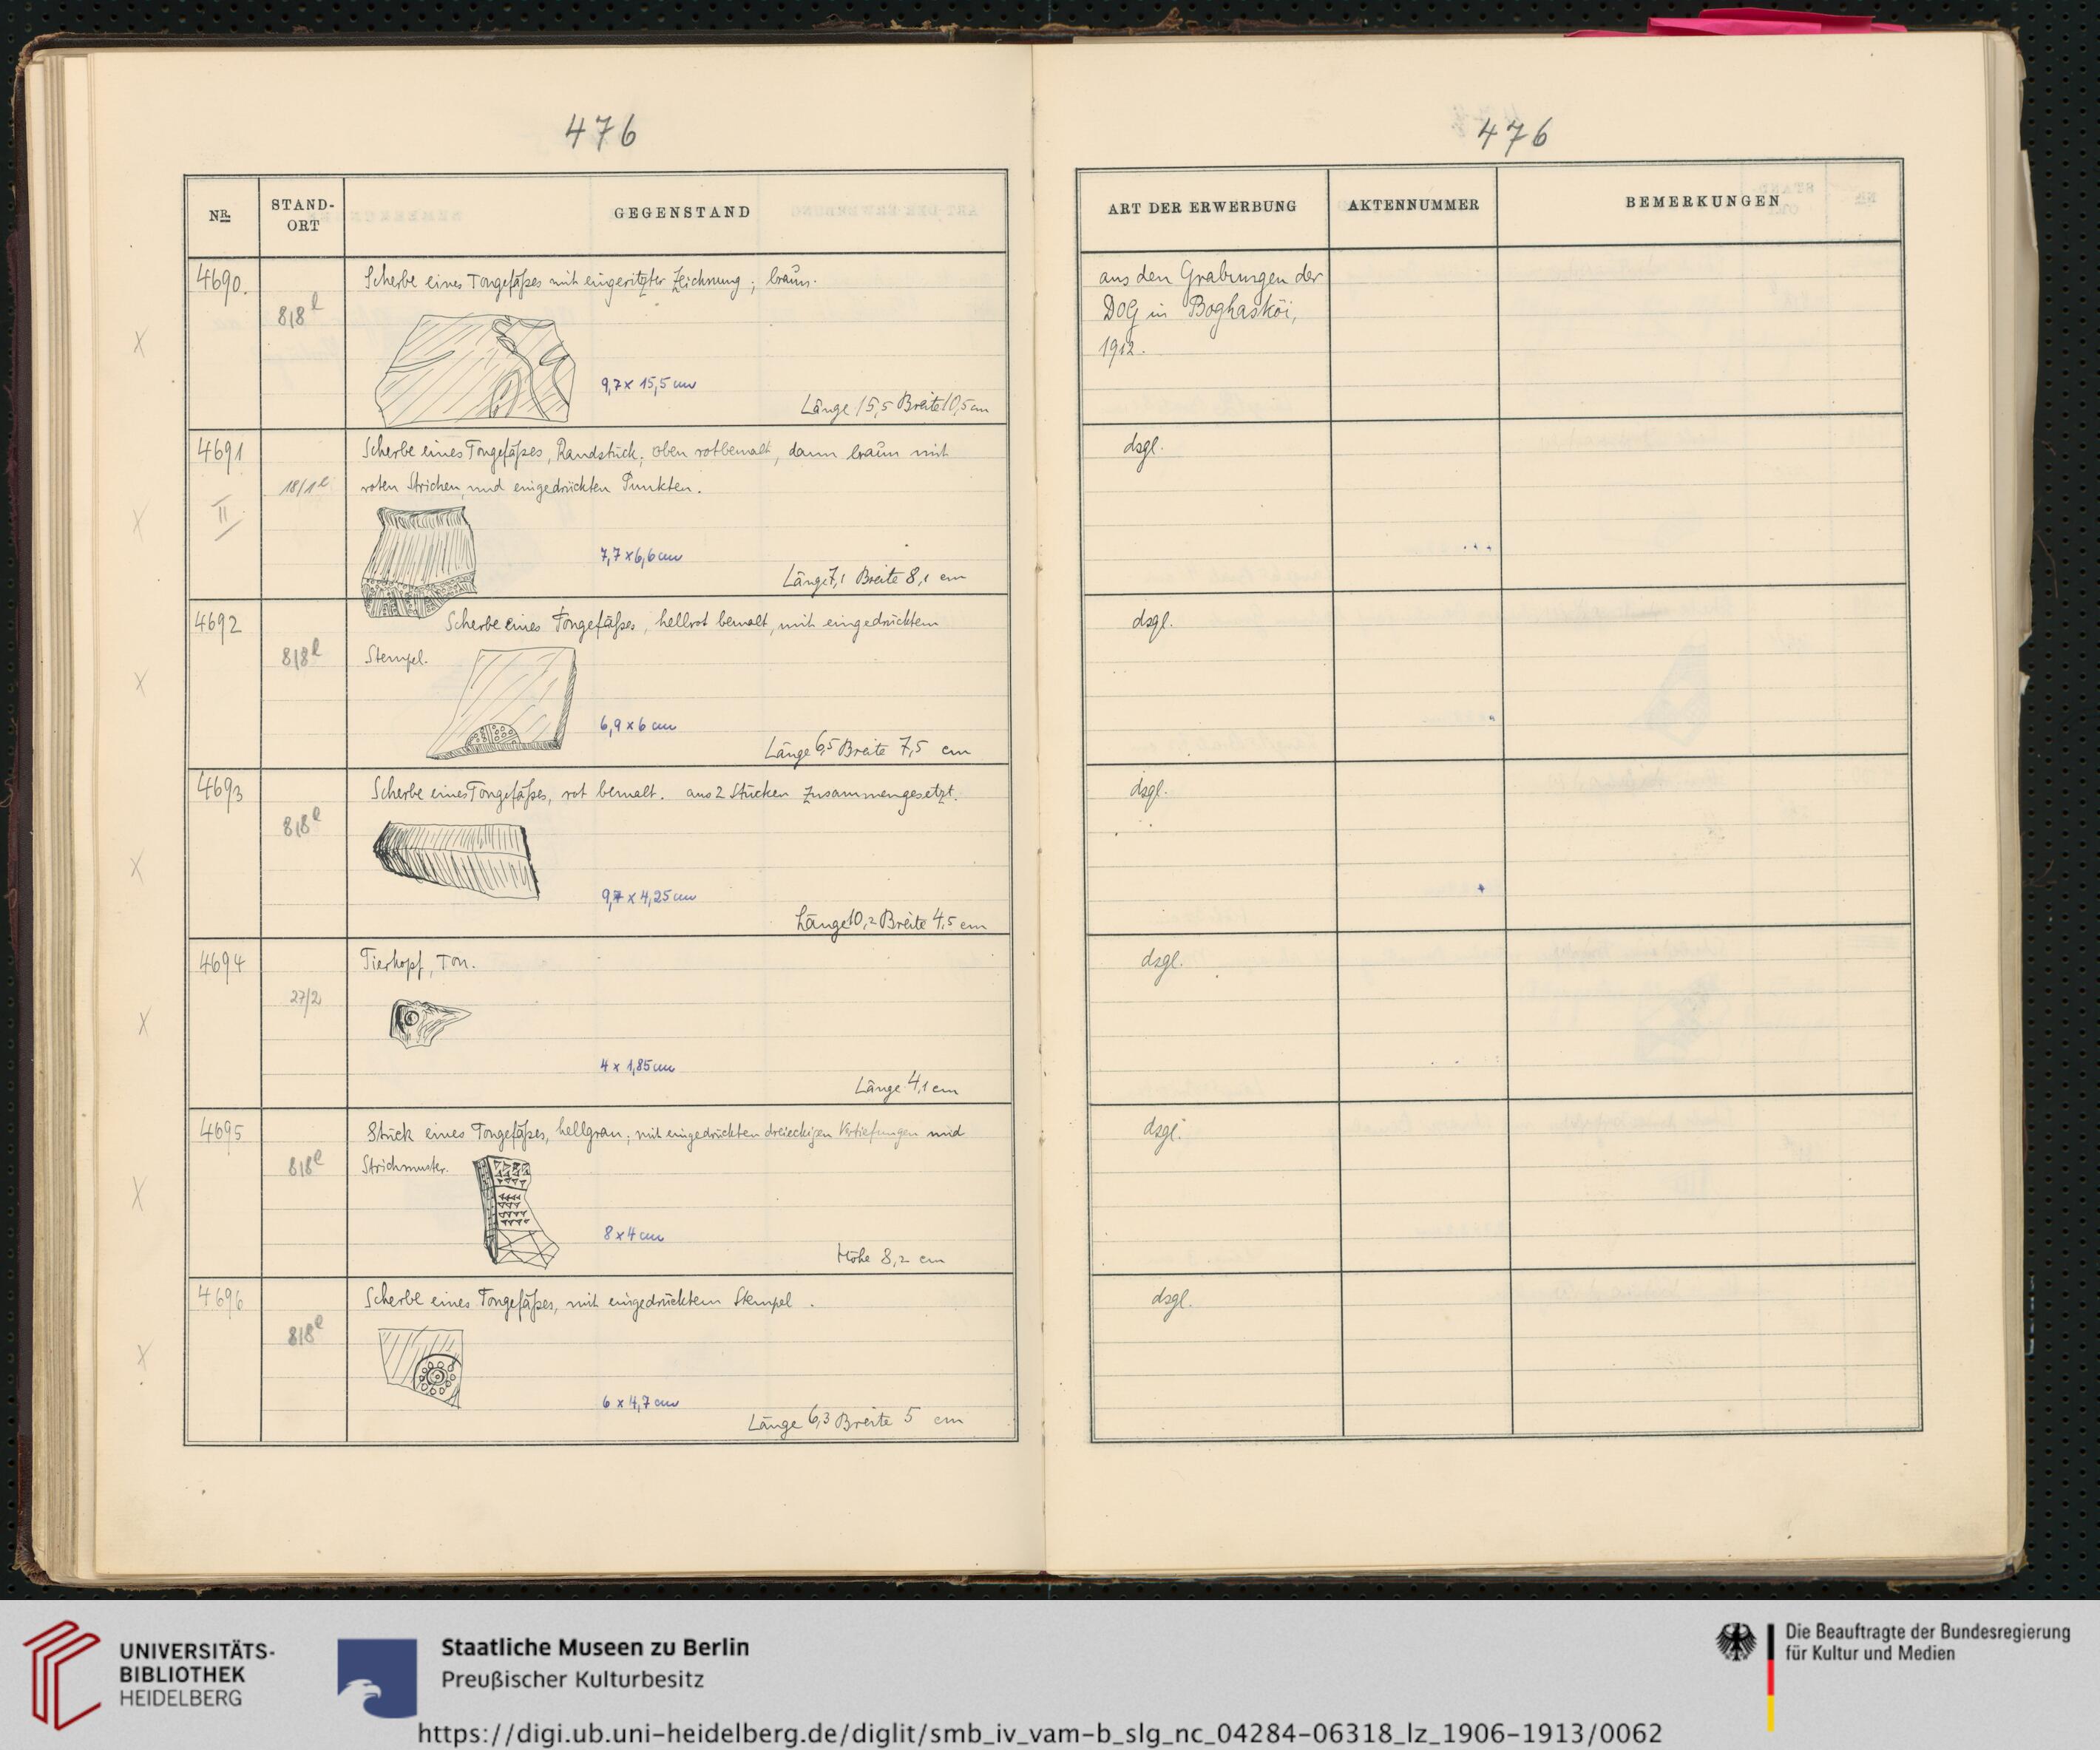 476
NR.
STAND-
ORT
GEGENSTAND
4690.
8/8 l
Scherbe eines Tongefäßes mit eingeritzter Zeichnung; braun.
9,7 x 15,5 cm
Länge 15,5 Breite 10,5 cm
4691
II
18/1 l
Scherbe eines Tongefäßes, Randstück; oben rotbemalt, dann braun mit
roten Strichen und eingedrückten Punkten.
7,7 x 6,6 cm
Länge 7,1 Breite 8,1 cm
4692
8/8 l
Scherbe eines Tongefäßes, hellrot bemalt, mit eingedrücktem
Stempel.
6,9 x 6 cm
Länge 6,5 Breite 7,5 cm
4693
8/8 l
Scherbe eines Tongefäßes, rot bemalt. aus 2 Stücken zusammengesetzt.
9,7 x 4,25 cm
Länge 10,2 Breite 4,5 cm
4694
27/2
Tierkopf, Ton.
4 x 1,85 cm
Länge 4,1 cm
4695
8/8 l
Stück eines Tongefäßes, hellgrau; mit eingedrückten dreieckigen Vertiefungen und
Strichmuster.
8 x 4 cm
Höhe 8,2 cm
4696
8/8 l
Scherbe eines Tongefäßes, mit eingedrücktem Stempel.
6 x 4,7 cm
Länge 6,3 Breite 5 cm
476
ART DER ERWERBUNG
AKTENNUMMER
BEMERKUNGEN
aus den Grabungen der
DOG in Boghasköi,
1912.
dsgl.
dsgl.
dsgl.
dsgl.
dsgl.
dsgl.
UNIVERSITÄTS-
BIBLIOTHEK
HEIDELBERG
Staatliche Museen zu Berlin
Preußischer Kulturbesitz
Die Beauftragte der Bundesregierung
für Kultur und Medien
https://digi.ub.uni-heidelberg.de/diglit/smb_iv_vam-b_slg_nc_04284-06318_lz_1906-1913/0062